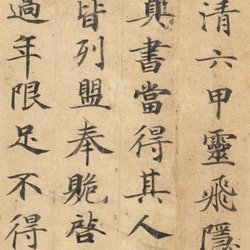 清六甲靈飛隱
真書當得其人
皆列盟奉貺啓
過年限足不得